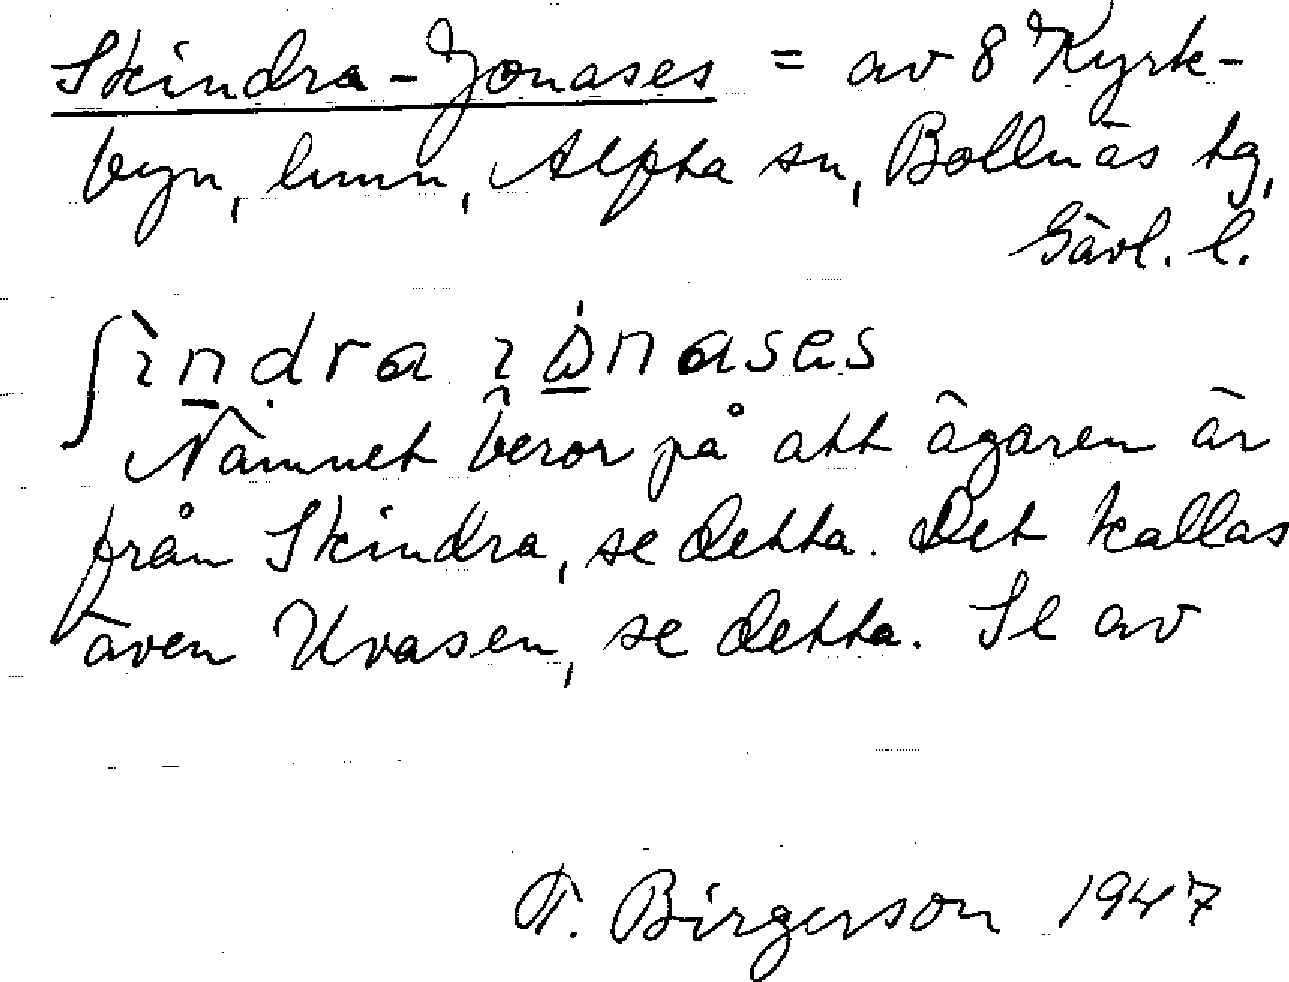 Skindra-Jonases = av 8 Kyrk-
byn, hmn, Alfta sn, Bollnäs tg,
Gävl. l.
ʃìndra ɪònases
Namnet beror på att ägaren är
från Skindra, se detta. Det kallas
även Uvasen, se detta. Se av
T. Birgerson 1947